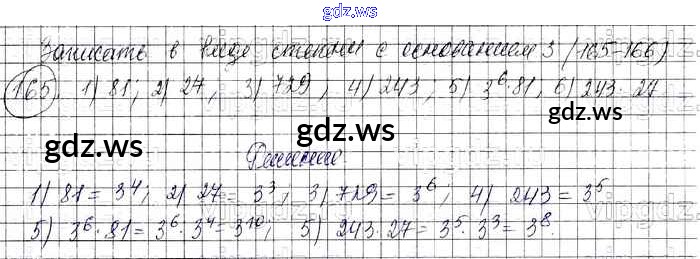 gdz.ws
Записать в виде степени с основанием 3 (165-166)
165. 1) 81; 2) 27, 3) 729, 4) 243; 5) 3⁶·81, 6) 243·27
gdz.ws gdz.ws
Решение
1) 81 = 3⁴; 2) 27 = 3³, 3) 729 = 3⁶; 4) 243 = 3⁵
5) 3⁶·81 = 3⁶·3⁴ = 3¹⁰; 5) 243·27 = 3⁵·3³ = 3⁸.
gdz.ws gdz.ws